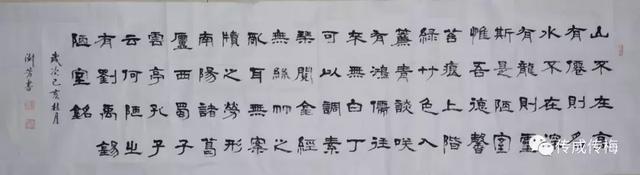 山不在高
有僊則名
水不在深
有龍則靈
斯是陋室
惟吾德馨
苔痕上階
綠艸色入
簾青談咲
有鴻儒往
來無白丁
可以調素
琴閱金經
無絲竹之
亂耳無案
牘之勞形
南陽諸葛
廬西蜀子
雲亭孔子
云何陋之
有劉禹錫
陋室銘
歲次己亥桂月
書
传成传梅